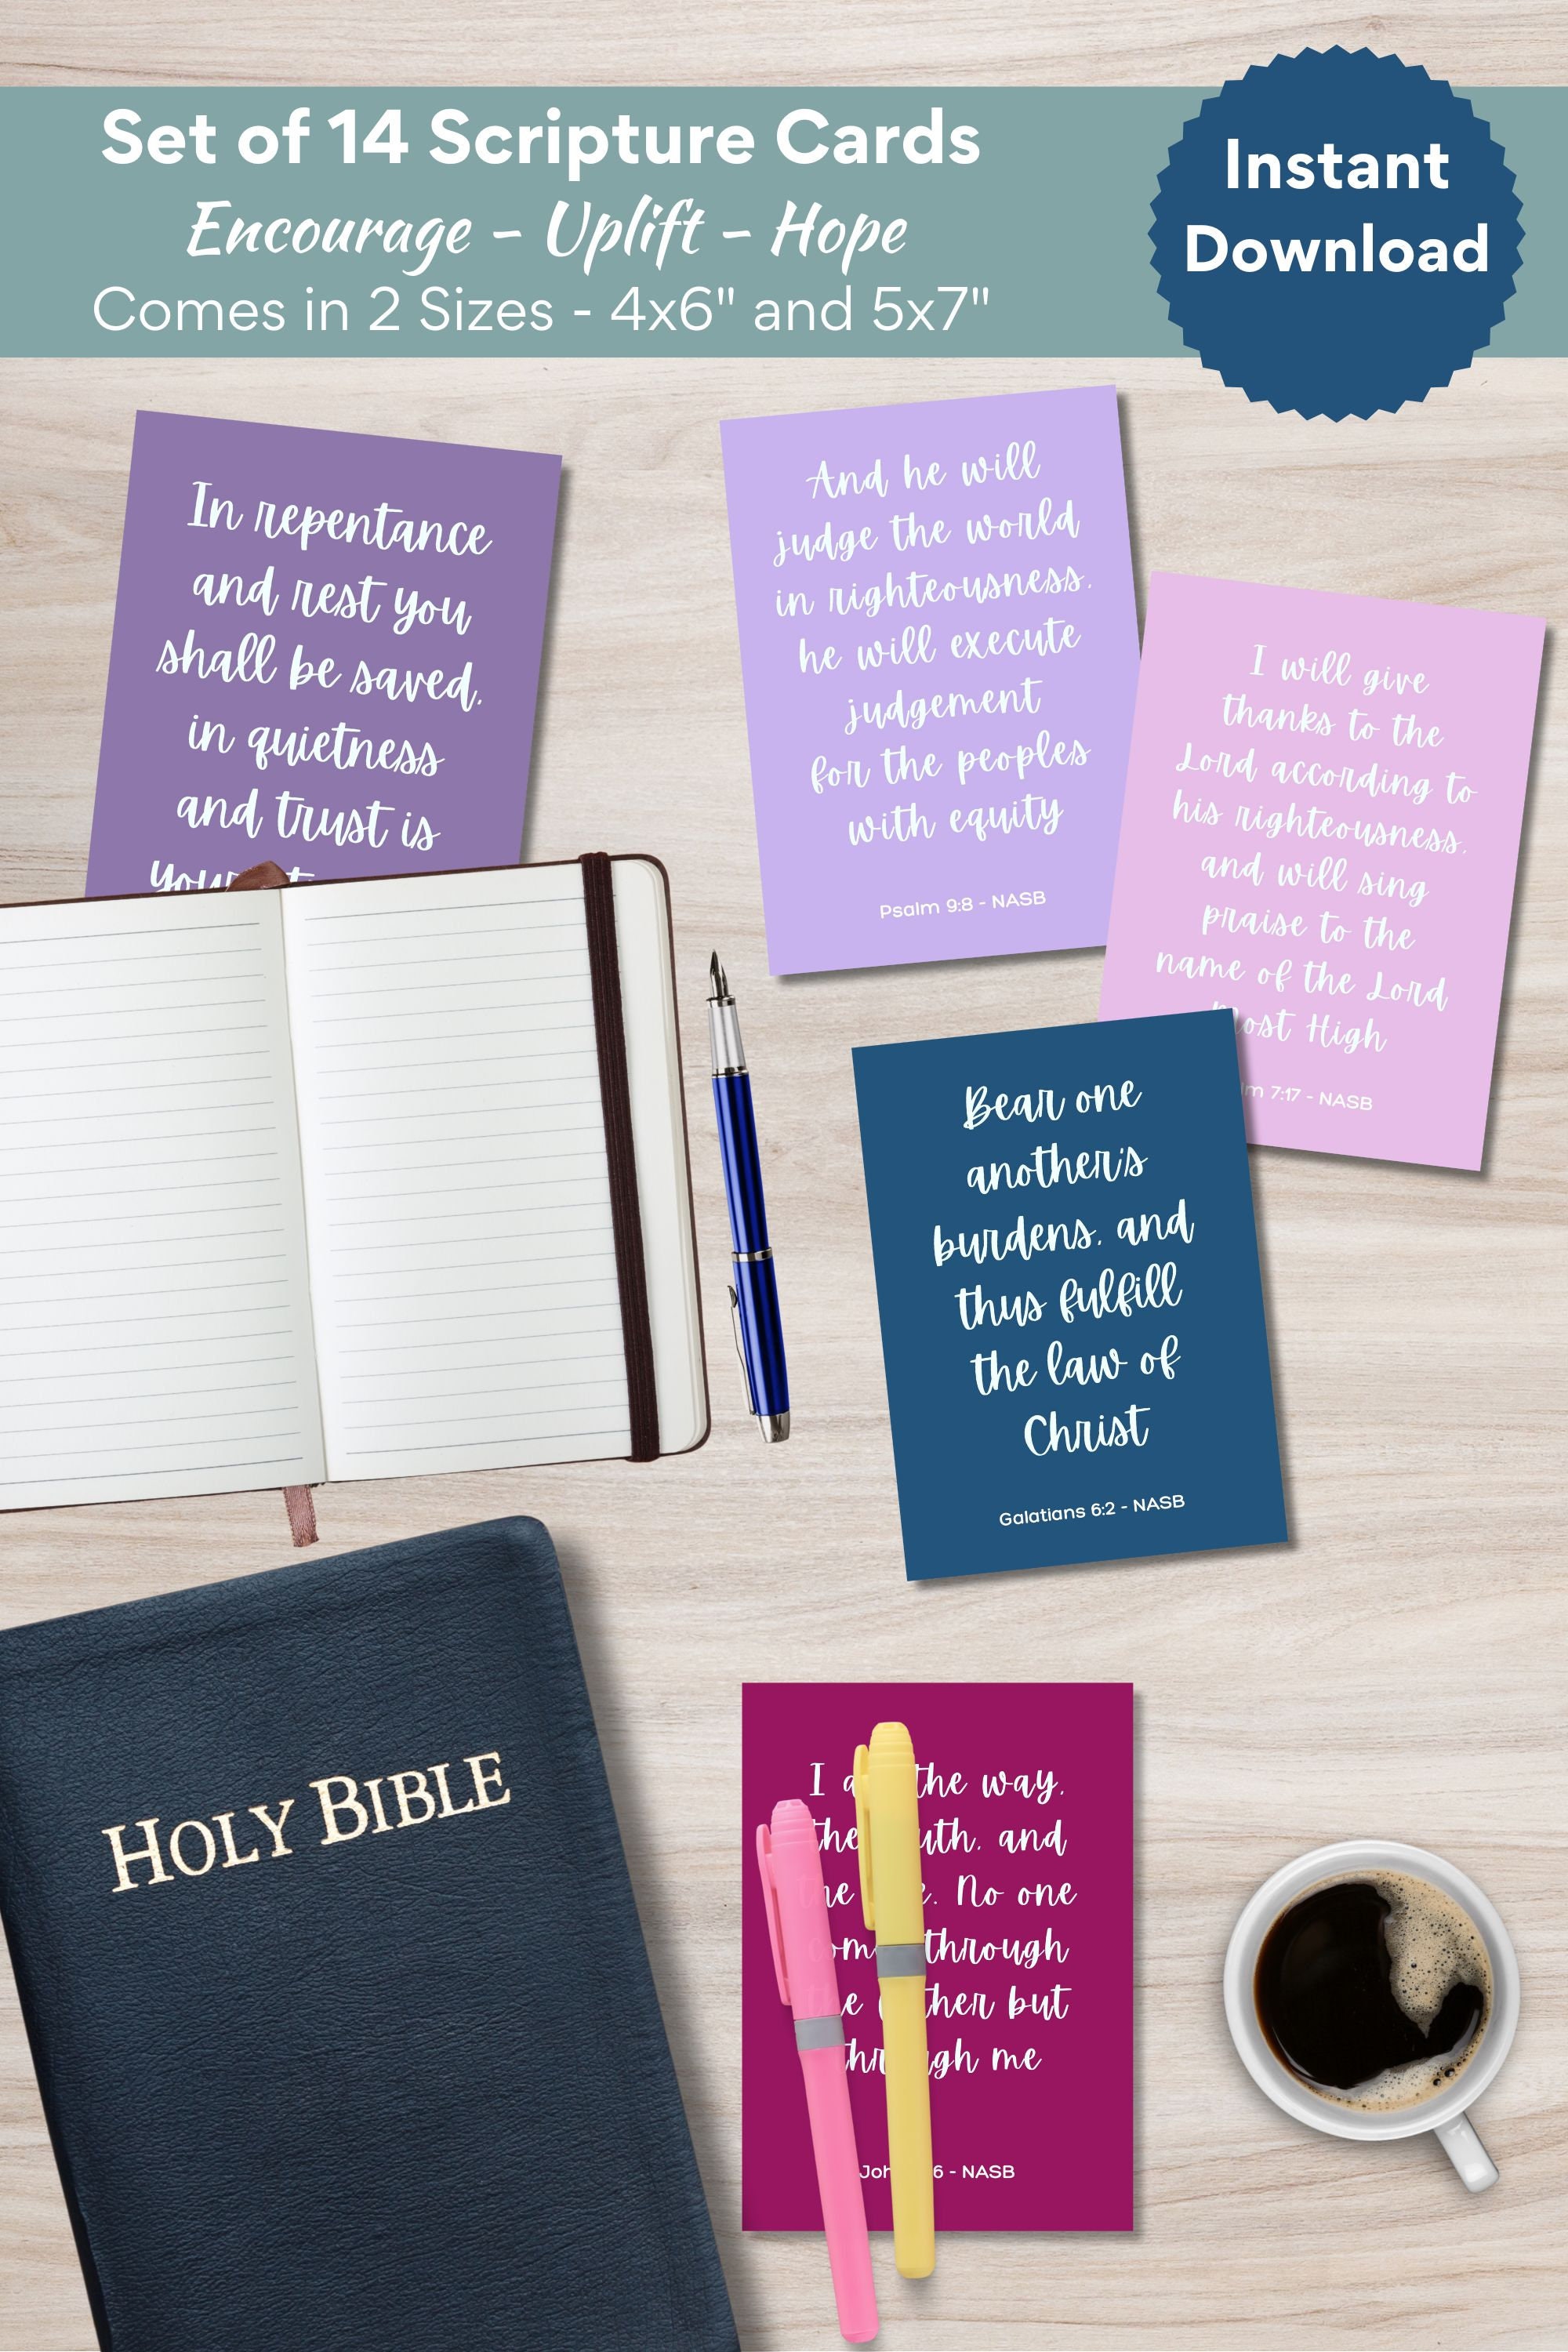 Set of 14 Scripture Cards
Encourage - Uplift - Hope
Comes in 2 Sizes - 4x6" and 5x7"
Instant
Download
In repentance
and rest you
shall be saved,
in quietness
and trust is
And he will
judge the world
in righteousness,
he will execute
judgement
for the peoples
with equity
Psalm 9:8 - NASB
I will give
thanks to the
Lord according to
his righteousness,
and will sing
praise to the
name of the Lord
most High
7:17 - NASB
Bear one
another's
burdens, and
thus fulfill
the law of
Christ
Galatians 6:2 - NASB
HOLY BIBLE
I the way,
the and
the No one
through
but
through me
6 - NASB